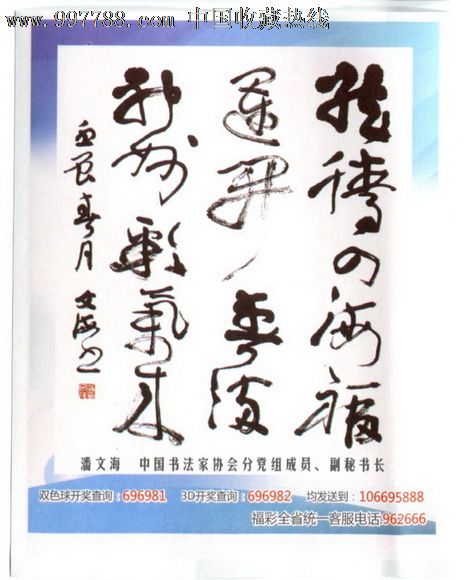 www.997788.com 中国收藏热线
龍騰四海福
運開春滿
神州彩氣來
壬辰春月 文海书
潘文海 中国书法家协会分党组成员、副秘书长
双色球开奖查询:696981 3D开奖查询:696982 均发送到:106695888
福彩全省统一客服电话:962666